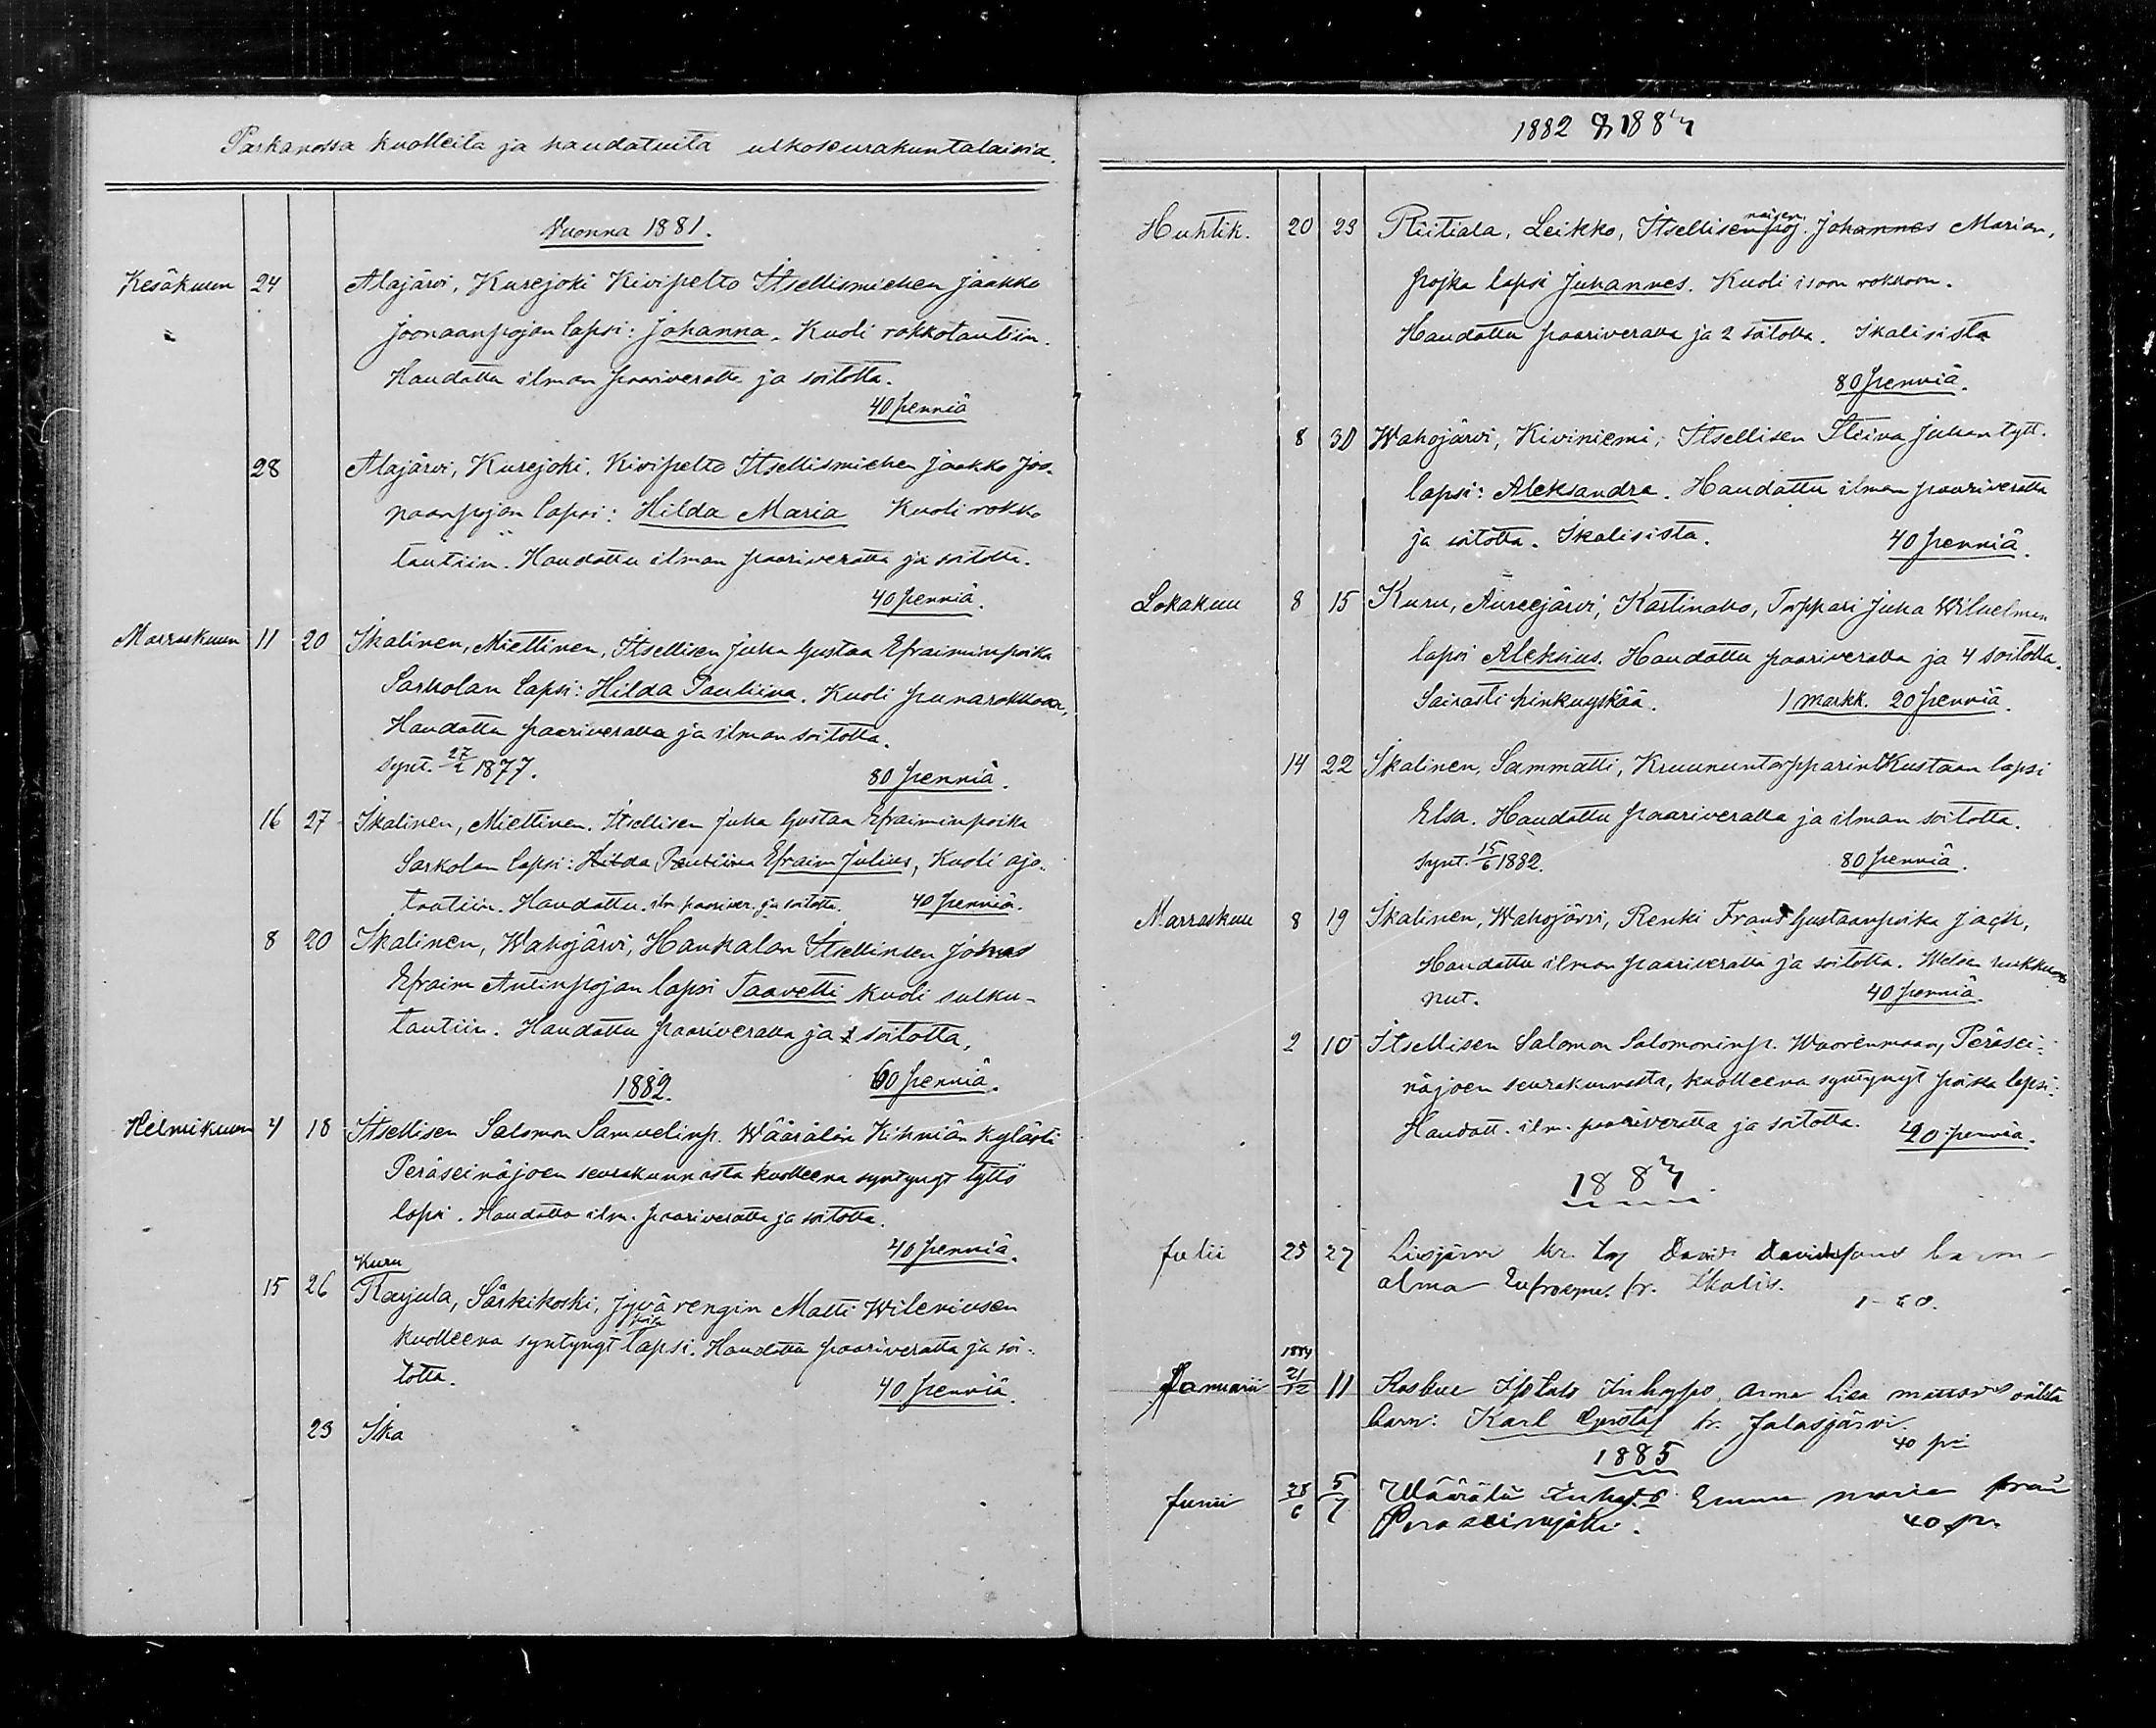 Parkanossa kuolleita ja haudatuita ulkoseurakuntalaisia.
Vuonna 1881.
Kesäkuun 24 Alajärvi, Kurejoki Kivipelto Itsellismiehen Jaakko
Joonaanpojan lapsi: Johanna. Kuoli rokkotautiin.
Haudattu ilman paariveratta ja soitotta.
40 penniä
28 Alajärvi, Kurejoki. Kivipelto Itsellismiehen Jaakko Joo-
naanpojan lapsi: Hilda Maria Kuoli rokko
tautiin. Haudattu ilman paariveratta ja soitotta.
40 penniä.
Marraskuun 11 20 Ikalinen, Miettinen, Itsellisen Juha Gustaa Efraiminpoika
Sarkolan lapsi: Hilda Pauliina. Kuoli punarokkoon,
Haudattu paariveralla ja ilman soitotta.
synt. 27/2 1877. 80 penniä.
16 27 Ikalinen, Miettinen. Itsellisen Juha Gustaa Efraiminpoika
Sarkolan lapsi: Hilda Pauliina Efraim Julius, Kuoli ajo-
tautiin. Haudattu. ilm paariver. ja soitotta. 40 penniä.
8 20 Ikalinen, Wahojärvi, Haukalan Itsellinsen Johnas
Efraim Antinpojan lapsi Taavetti kuoli sulku-
tautiin. Haudattu paariveralla ja soitotta,
60 penniä.
1882.
Helmikuun 4 18 Itsellisen Salomon Samuelinp. Wäärälän Kihniän kylästi
Peräseinäjoen seurakunnasta kuolleena syntynyt tyttö
lapsi. Haudattu ilm. paariveratta ja soitotta.
40 penniä.
Kuru
15 26 Karjula, Särkikoski, Jyvä rengin Matti Wileniusen
poika
kuolleena syntynyt lapsi. Haudattu paariveratta ja soi-
totta.
40 penniä.
23 Ika
1882 & 1883
naisen
Huhtik. 20 23 Riitiala, Leikko, Itsellisenpoj. Johannes Marian,
pojka lapsi Juhannes. Kuoli isoon rokkoon.
Haudattu paariveralla ja 2 soitolla. Ikalisista
80 penniä.
8 30 Wahojärvi, Kiviniemi, Itsellisen Stiina Juhan tytt.
lapsi: Aleksandra. Haudattu ilman paariveratta
ja soitotta. Ikalisista. 40 penniä.
Lokakuu 8 15 Kuru, Aureejärvi, Kartinaho, Torppari Juha Wilhelman
lapsi Aleksius. Haudattu paariveralla ja 4 soitolla.
Sairasti hinkuyskää. 1 markk. 20 penniä.
14 22 Ikalinen, Sammatti, Kruununtorpparin Kustaan lapsi
Elsa. Haudattu paariveralla ja ilman soitotta.
synt. 15/6 1882. 80 penniä.
Marraskuu 8 19 Ikalinen, Wahojärvi, Renki Frans Gustaanpoika
Haudattu ilman paariveratta ja soitotta. Weteen hukku-
nut. 40 penniä.
2 10 Itsellisen Salomon Salomoninp. Wuorenmaan, Peräsei-
näjoen seurakunnasta, kuolleena syntynyt poika lapsi.
Haudatt. ilm. paariveratta ja soitotta. 40 penniä.
1883.
Julii 25 27 Davids barn
alma fr. Ikalis.
1-60.
1884
Januarii 21/12 11 Anna Lisa oäkta
barn: Karl Gustaf fr. Jalasjärvi.
40 pi
1885
Junii 28/6 5/7 Wäärälä Emma Maria från
Peraseinäjoki. 40 pi.